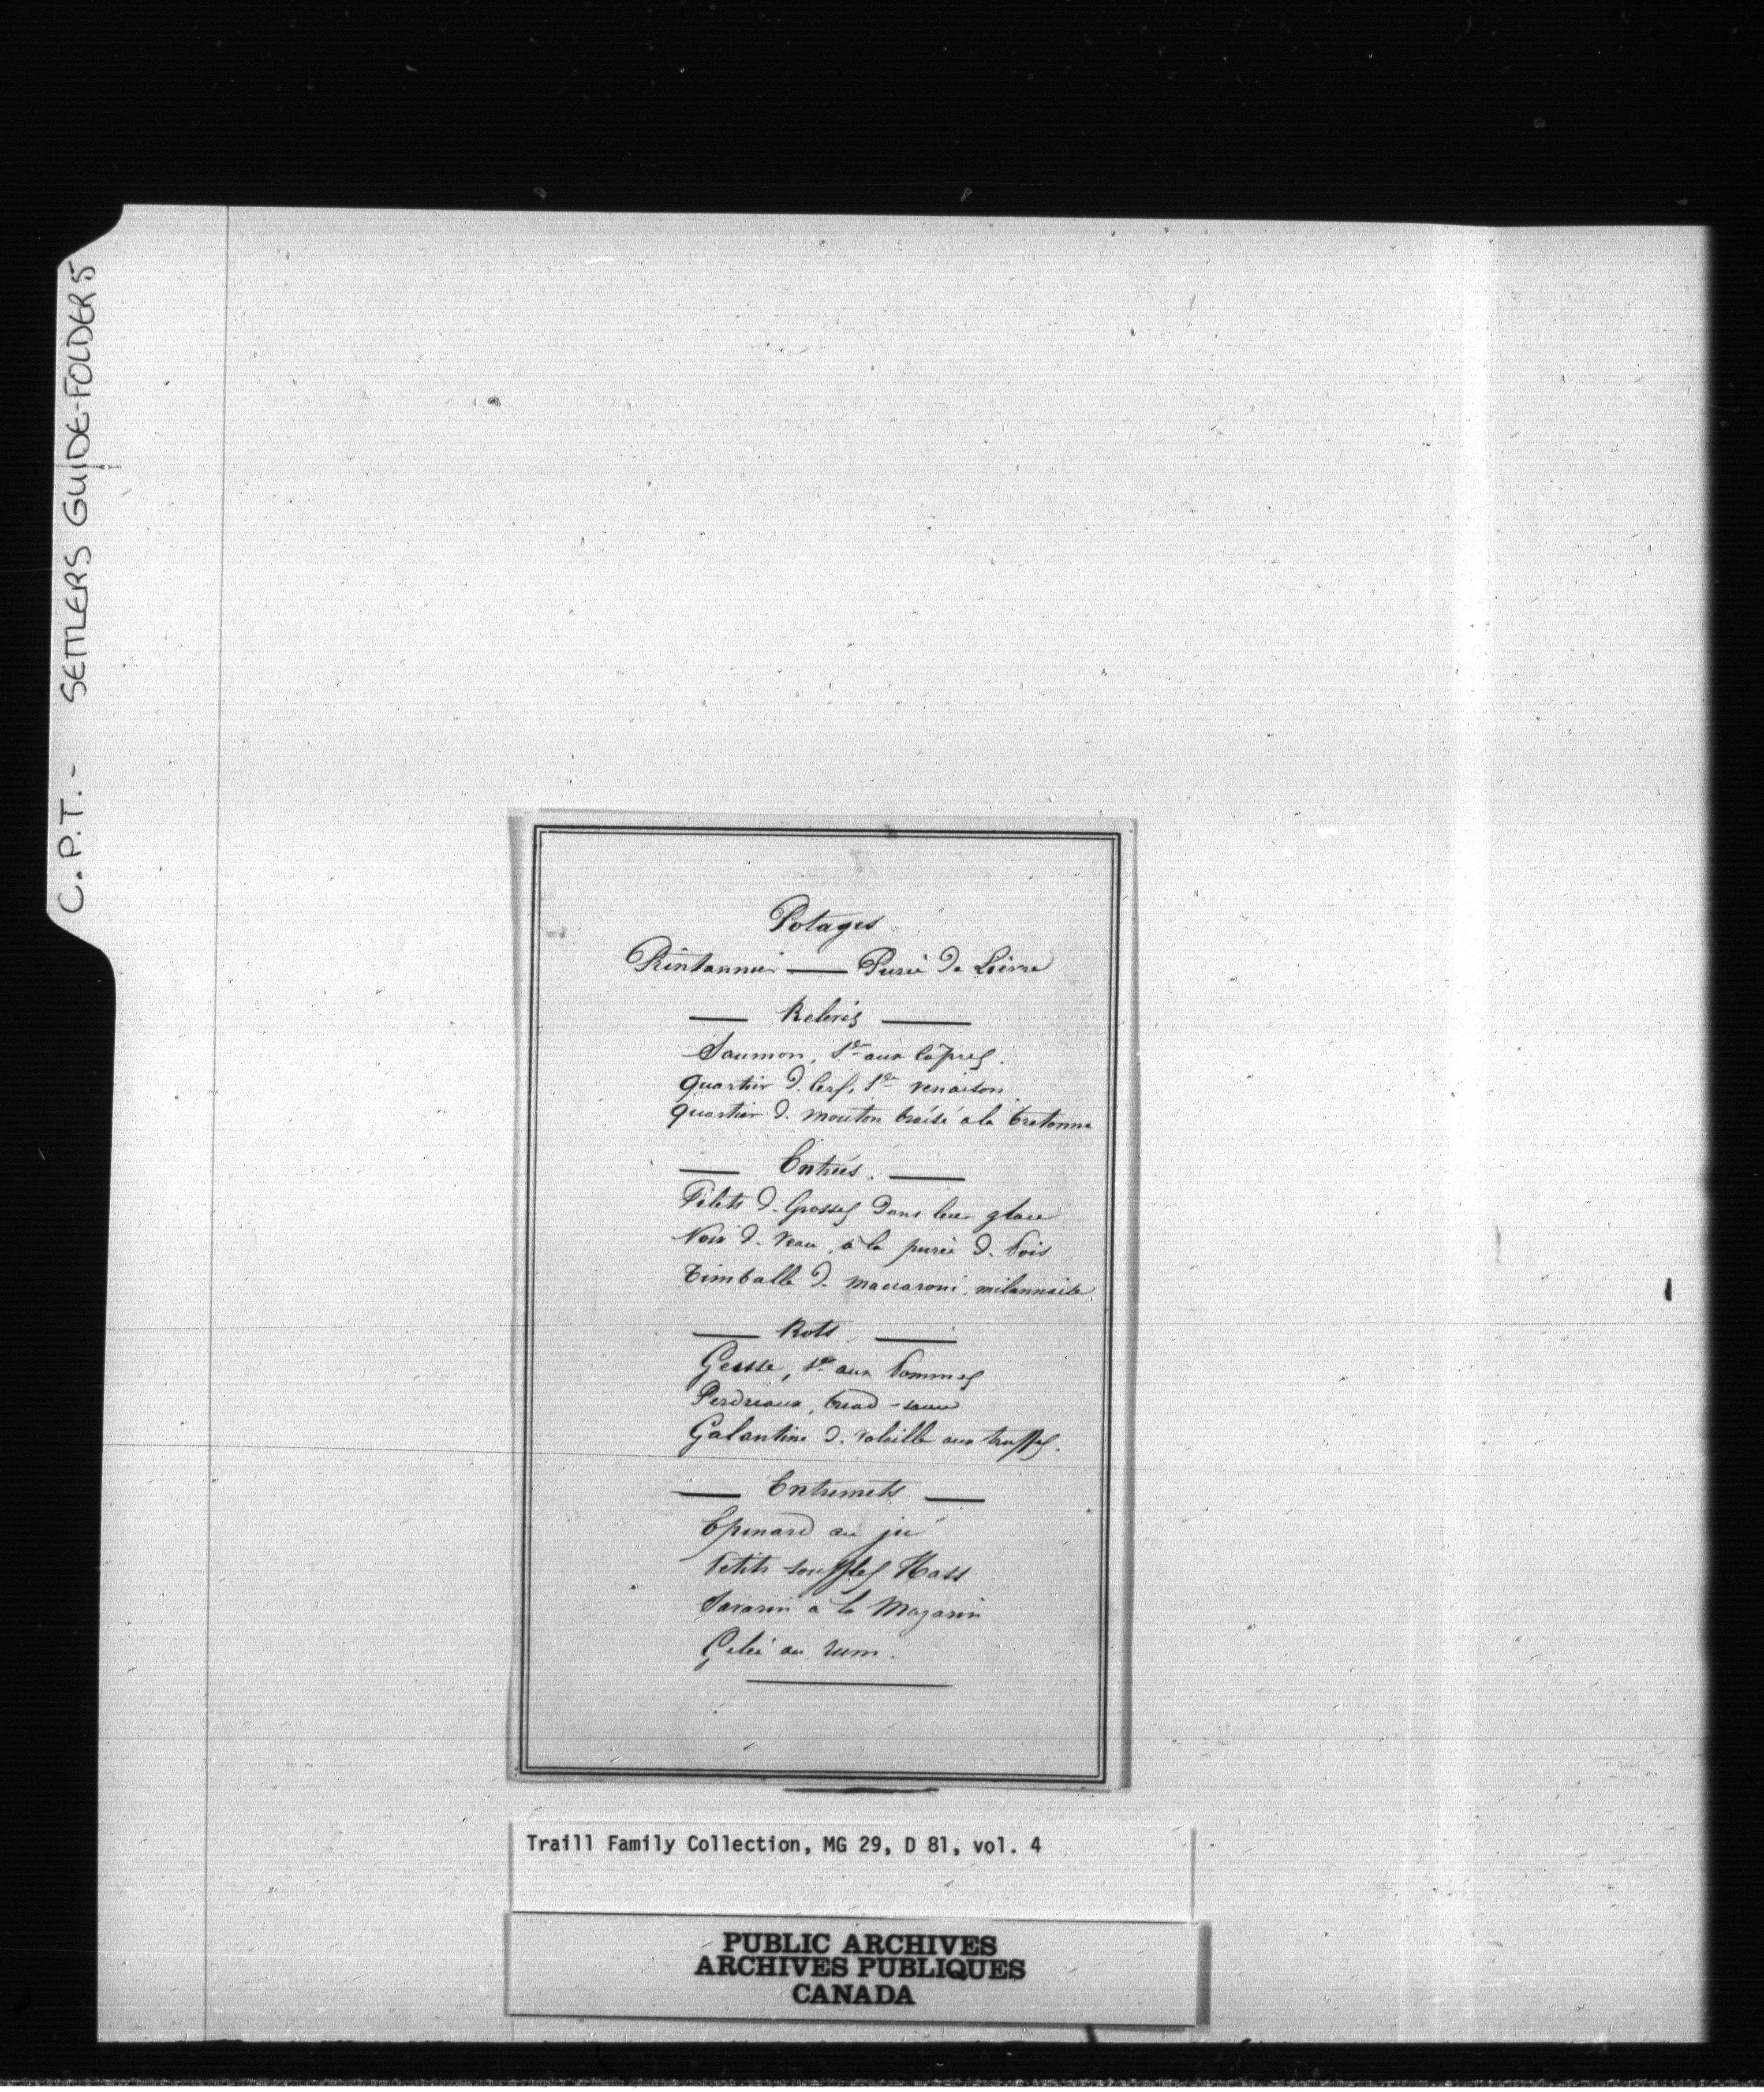 C.P.T. - SETTLERS GUIDE-FOLDER 5
Potages
Printannier — Purée de Lièvre
— Relevés —
Saumon, Sce aux Câpres.
Quartier de Cerf, Sce venaison
Quartier de mouton braisé à la bretonne
— Entrées. —
Filets de Grosses dans leur glace
Noix de Veau, à la purée de Pois
Timballe de maccaroni, milannaise
— Rots —
Geisse, Sce aux Pommes
Perdreaux, bread-sauce
Galantine de volaille aux truffes.
— Entremets —
Epinard au jus
Petits soufflés
Savarin à la Mazarin
Gelée au rum.
Traill Family Collection, MG 29, D 81, vol. 4
PUBLIC ARCHIVES
ARCHIVES PUBLIQUES
CANADA